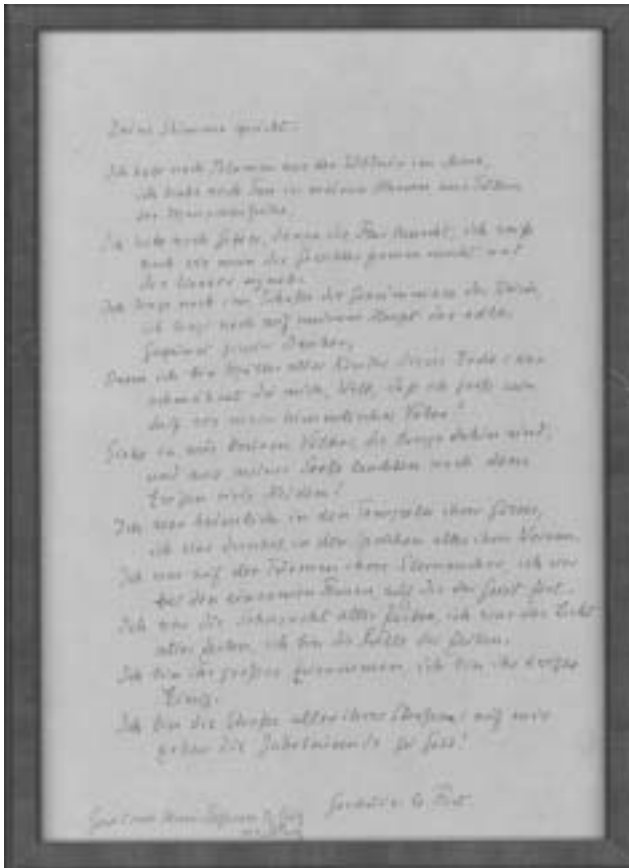 Deine Stimme spricht:
Ich habe noch Blumen aus der Wildnis im Arme,
ich habe noch Tau in meinen Haaren aus Tälern
der Menschenfrühe,
Ich habe noch Gebete, denen die Flur lauscht, ich weiß
noch wie man die Gewitter fromm macht und
das Wasser segnet.
Ich trage noch im Schoße die Geheimnisse der Wüste,
ich trage noch auf meinem Haupt das edle
Gespinst grauer Denker,
Denn ich bin Mutter aller Kinder dieser Erde: was
schmähest du mich, Welt, daß ich groß sein
darf wie mein himmlischer Vater?
Siehe in mir knieen Völker, die lange dahin sind,
und aus meiner Seele leuchten nach dem
Ewigen viele Heiden!
Ich war heimlich in den Tempeln ihrer Götter,
ich war dunkel in den Sprüchen aller ihrer Weisen.
Ich war auf den Türmen ihrer Sternsucher, ich war
bei den einsamen Frauen, auf die der Geist fiel.
Ich war die Sehnsucht aller Zeiten, ich war das Licht
aller Zeiten, ich bin die Fülle der Zeiten.
Ich bin ihr großes Zusammen, ich bin ihr ewiges
Einig.
Ich bin die Straße aller ihrer Straßen: auf mir
ziehen die Jahrtausende zu Gott!
Gertrud le Fort.